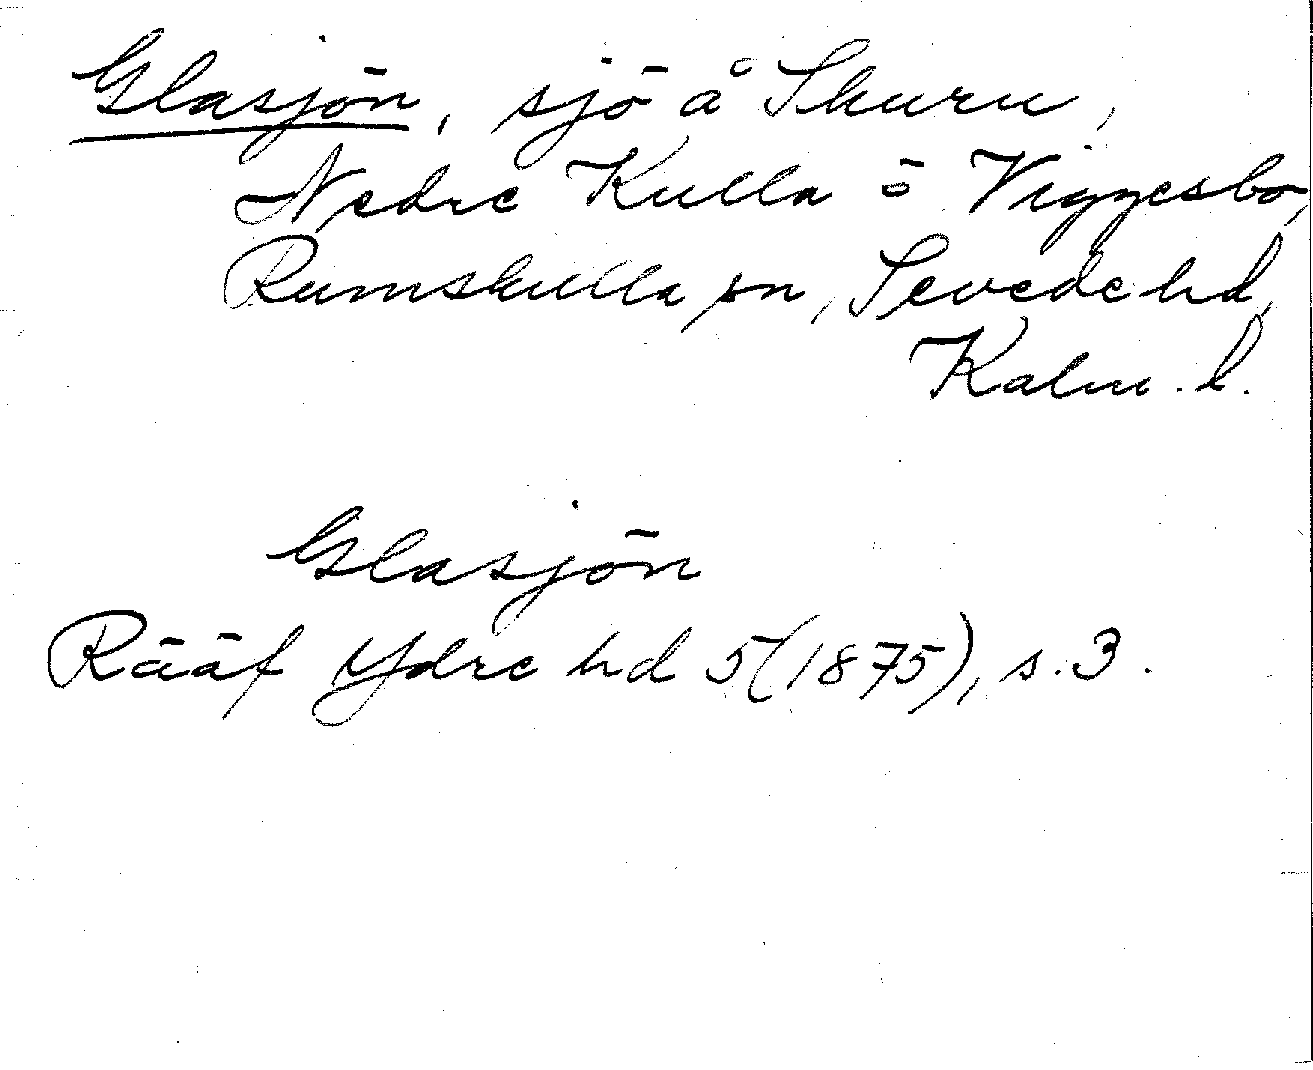 Glasjön, sjö å Skuru,
Nedre Kulla o Viggesbo,
Rumskulla sn, Sevede hd,
Kalm. l.
Glasjön
Rääf Ydre hd 5 (1875), s. 3.